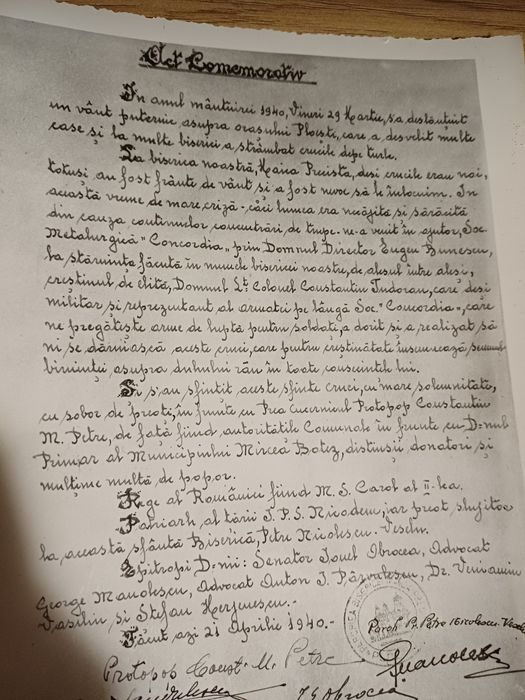 Act Comemorativ
In anul mântuirei 1940, Vineri 29 Martie, s'a deslănțuit
un vânt puternic asupra orașului Ploești, care, a desvelit multe
case și la multe biserici a strâmbat crucile depe turle.
La biserica noastră, Maica Precista, deși crucile erau noi,
totuși au fost frânte de vânt și a fost nevoe să le înlocuim. In
această vreme de mare criză - căci lumea era necăjită și sărăcită
din cauza continuelor concentrări de trupe - ne-a venit în ajutor, Soc.
Metalurgică "Concordia" prin Domnul Director Eugeu Bunescu,
la stăruința făcută în numele bisericei noastre, de alesul între aleși,
creștinul de elită, Domnul Lt. Colonel Constantin Tudoran, care deși
militar și reprezentant al armatei pe lângă Soc. "Concordia", care
ne pregătește arme de luptă pentru soldați, a dorit și a realizat să
ni se dărniască aceste cruci, care pentru creștinătate însemnează semnul
biruinței asupra duhului rău în toate conștiințele lui.
Și s'au sfințit aceste sfinte cruci, cu mare solemnitate,
cu sobor de preoți, în frunte cu Prea Cucernicul Protopop Constantin
M. Petre, de față fiind autoritățile Comunale în frunte cu D-nul
Primar al Municipiului Mircea Botez, distinșii donatori și
mulțime multă de popor.
Rege al României fiind M. S. Carol al II-lea.
Patriarh, al țării I.P.S. Nicodem, iar preot slujitor
la această sfântă Biserică, Petre Nicolescu-Veselin.
Epitropi D-nii: Senator Ionel Obrocea, Advocat
George Manolescu, Advocat Anton I. Pârvulescu, Dr. Veniamin
Vasiliu și Ștefan
Făcut azi 21 Aprilie 1940.-
Paroh Pr. Petre Nicolescu-
Protopop Const. M. Petre
Manolescu
I. Obrocea